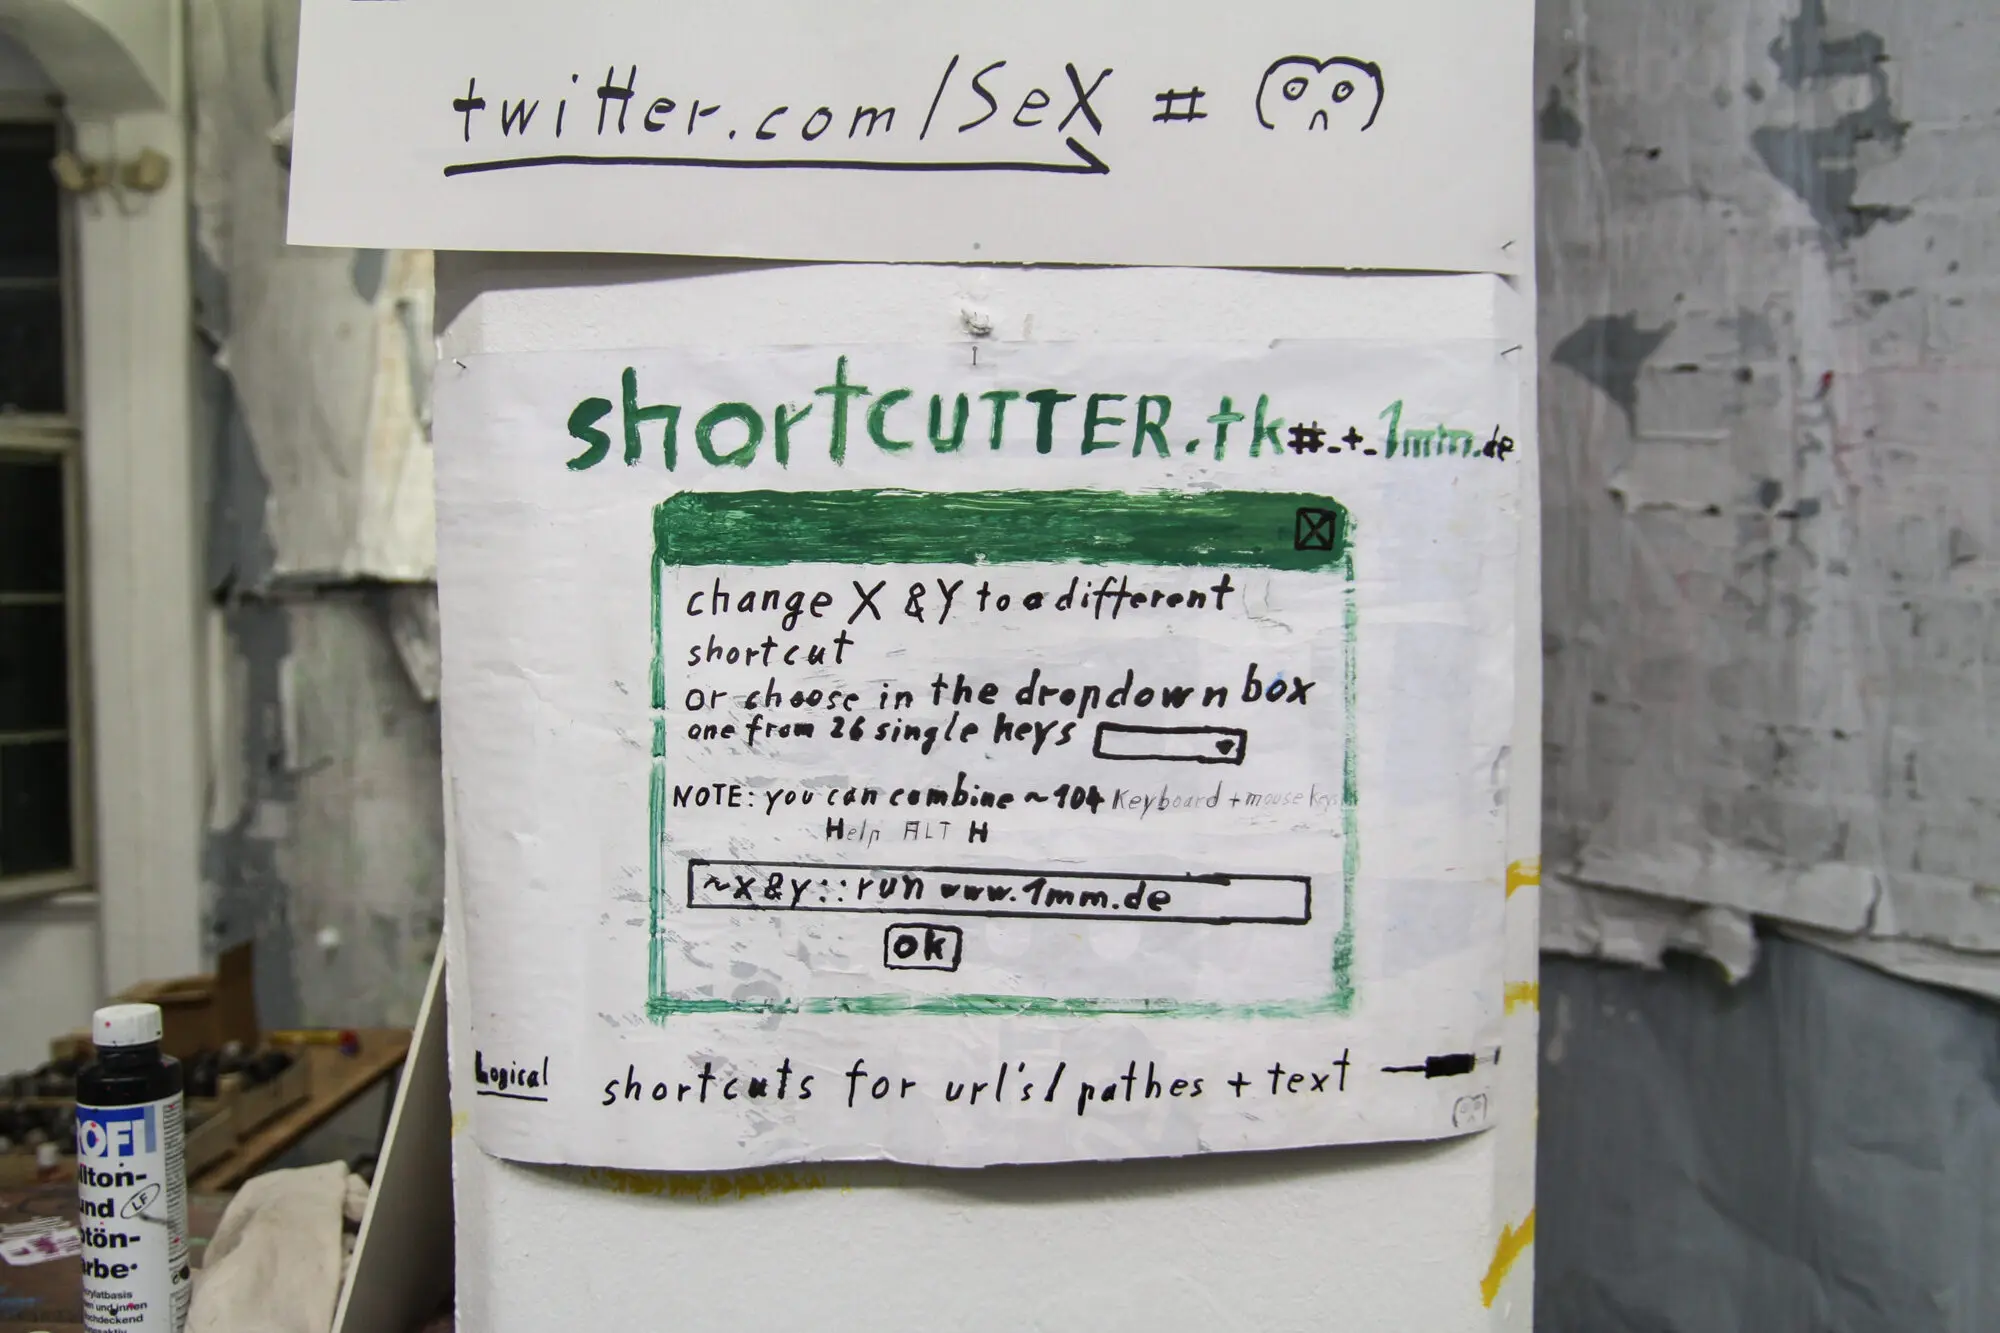 twitter.com/SeX #
shortCUTTER.tk#-+-1mm.de
change X & Y to a different
shortcut
or choose in the dropdown box
one from 26 single keys
NOTE: you can combine ~104 Keyboard + mouse keys
Help ALT H
~x & y::run www.1mm.de
ok
Logical shortcuts for url's/pathes + text
ROFI
lton-
und
otön-
arbe
LF
crylatbasis
en und innen
chdeckend